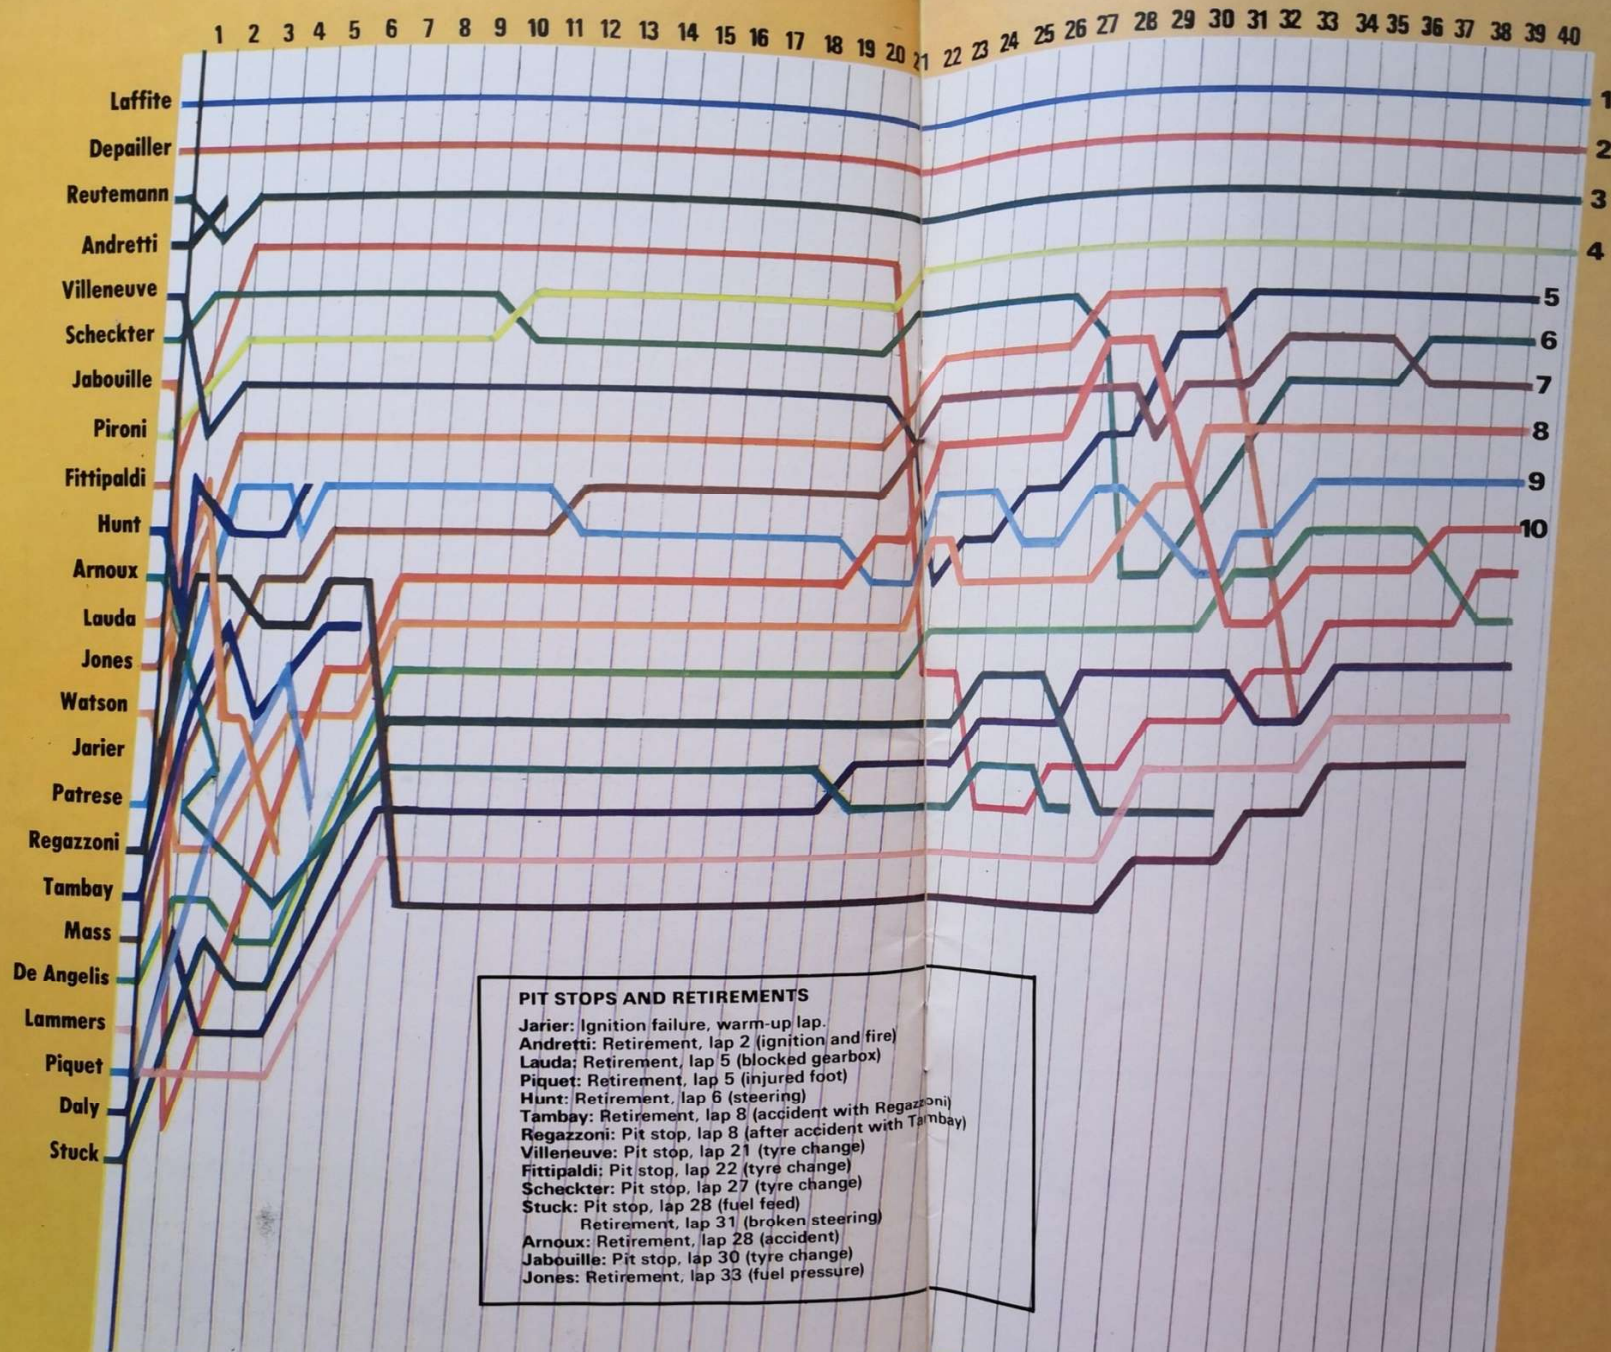 1 2 3 4 5 6 7 8 9 10 11 12 13 14 15 16 17 18 19 20 21 22 23 24 25 26 27 28 29 30 31 32 33 34 35 36 37 38 39 40
Laffite
Depailler
Reutemann
Andretti
Villeneuve
Scheckter
Jabouille
Pironi
Fittipaldi
Hunt
Arnoux
Lauda
Jones
Watson
Jarier
Patrese
Regazzoni
Tambay
Mass
De Angelis
Lammers
Piquet
Daly
Stuck
1
2
3
4
5
6
7
8
9
10
PIT STOPS AND RETIREMENTS
Jarier: Ignition failure, warm-up lap.
Andretti: Retirement, lap 2 (ignition and fire)
Lauda: Retirement, lap 5 (blocked gearbox)
Piquet: Retirement, lap 5 (injured foot)
Hunt: Retirement, lap 6 (steering)
Tambay: Retirement, lap 8 (accident with Regazzoni)
Regazzoni: Pit stop, lap 8 (after accident with Tambay)
Villeneuve: Pit stop, lap 21 (tyre change)
Fittipaldi: Pit stop, lap 22 (tyre change)
Scheckter: Pit stop, lap 27 (tyre change)
Stuck: Pit stop, lap 28 (fuel feed)
Retirement, lap 31 (broken steering)
Arnoux: Retirement, lap 28 (accident)
Jabouille: Pit stop, lap 30 (tyre change)
Jones: Retirement, lap 33 (fuel pressure)